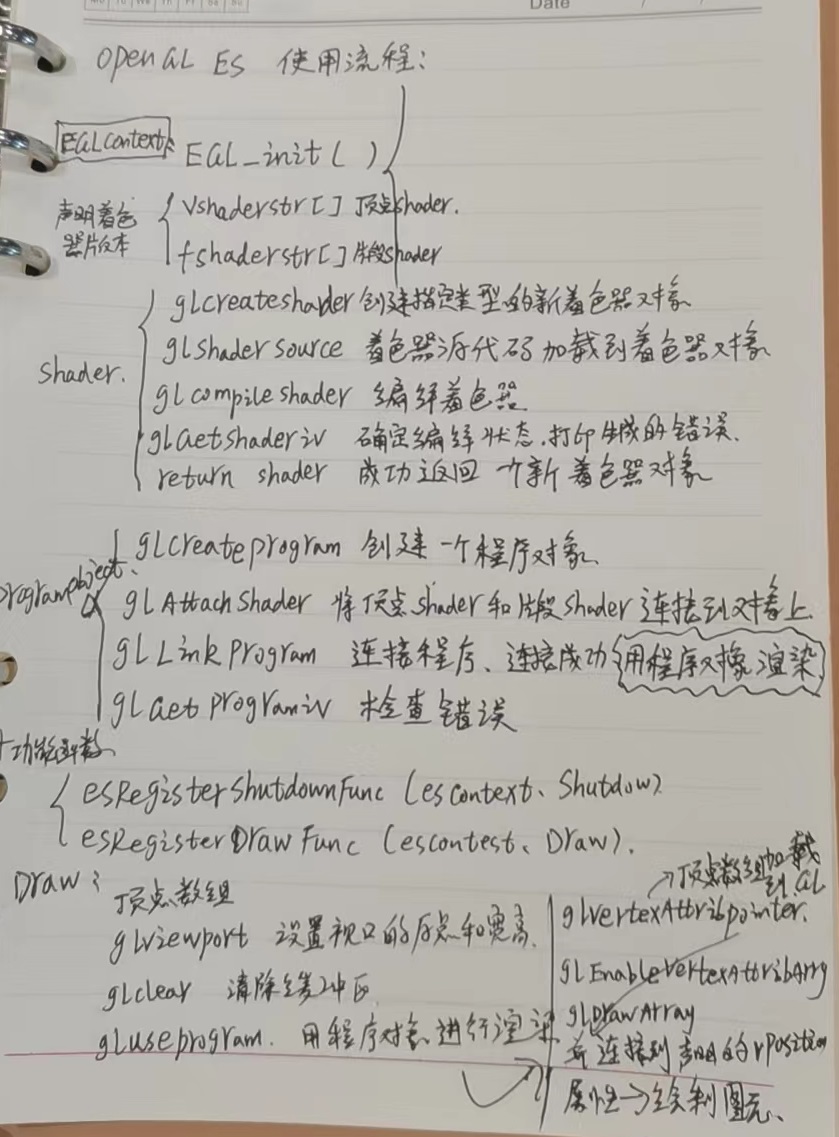 Date
OpenGL ES 使用流程:
EGLContext: EGL_init( )
声明着色
器版本
Vshaderstr[] 顶点shader.
fshaderstr[] 片段shader
shader.
glcreateshader 创建指定类型的新着色器对象
glshadersource 着色器源代码加载到着色器对象
glcompileshader 编译着色器
glGetshaderiv 确定编译状态.打印生成的错误.
return shader 成功返回一个新着色器对象
programobject
glCreateprogram 创建一个程序对象.
glAttachShader 将顶点shader和片段shader连接到对象上.
glLinkprogram 连接程序、连接成功用程序对象渲染
glGetprogramiv 检查错误
功能函数
esRegisterShutdownFunc (escontext、Shutdow)
esRegisterDrawFunc (escontest、Draw).
Draw:
顶点数组
glviewport 设置视口的原点和宽高.
glclear 清除缓冲区
gluseprogram. 用程序对象进行渲染
→顶点数组加载
到GL
glvertexAttribpointer.
glEnablevertexAttribArry
glDrawArray
并连接到声明的vPosition
属性→绘制图元.